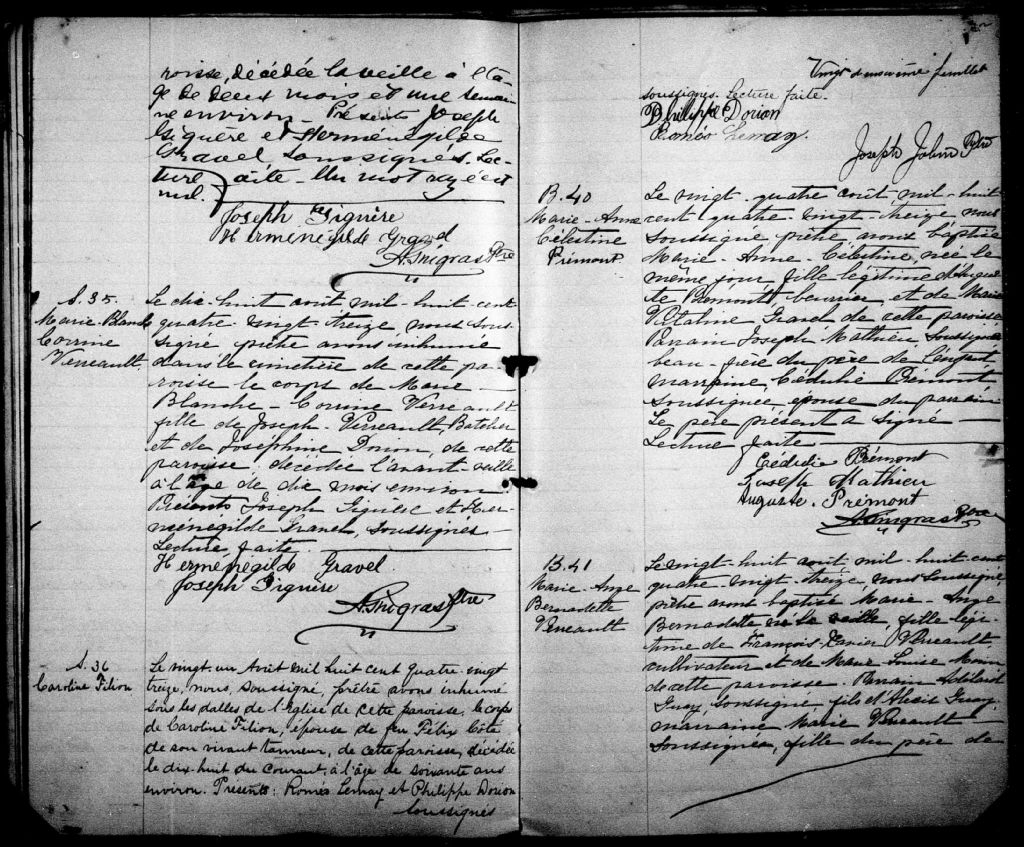 roisse, décédée la veille à l'â-
ge de deux mois et une semai-
ne environ. Présents Joseph
Giguère et Herménégilde
Gravel soussignés. Lec-
ture faite. Un mot rayé est
nul.
Joseph Giguère
Herménégilde Gravel
Ptre
S. 35.
Marie Blanche
Corrine
Verreault
Le dix-huit août mil-huit-cent
quatre-vingt-treize, nous sous-
signé prêtre avons inhumé
dans le cimetière de cette pa-
roisse le corps de Marie
Blanche-Corrine Verreault
fille de Joseph-Verreault,
et de Joséphine Dorion, de cette
paroisse, décédée l'avant-veille
à l'âge de dix mois environ.
Présents Joseph Giguère et Her-
ménégilde Gravel, soussignés
Lecture faite.
Herménégilde Gravel
Joseph Giguère
Ptre
S. 36
Caroline Filion
Le vingt un Août mil huit cent quatre-vingt
treize, nous, soussigné, prêtre avons inhumé
sous les dalles de l'Eglise de cette paroisse, le corps
de Caroline Filion, épouse de feu Félix Côté
de son vivant tanneur, de cette paroisse, décédée
le dix huit du courant, à l'âge de soixante ans
environ. Présents: Roméo Lemay et Philippe Dorion
soussignés
Vingt deuxième feuillet
soussignés. Lecture faite.
Philippe Dorion
Roméo Lemay
Joseph Ptre
B. 40
Marie-Anne
Célestine
Prémont
Le vingt-quatre août, mil-huit
cent quatre-vingt-treize nous
soussigné prêtre avons baptisé
Marie-Anne-Célestine, née le
même jour, fille légitime d'Augus-
te Prémont, beurrier et de Marie
Vitaline Gravel de cette paroisse
Parrain Joseph Mathieu, soussigné
beau-frère du père de l'enfant
marraine, Cédulie Prémont
soussignée, épouse du parrain
Le père présent a signé
Lecture faite
Cédulie Prémont
Joseph Mathieu
Auguste Prémont
Ptre
B. 41
Marie-Ange
Bernadette
Verreault
Le vingt-huit août, mil-huit-cent
quatre-vingt-treize, nous soussigné
prêtre avons baptisé Marie-Ange
Bernadette née la veille, fille légi-
time de François-Xavier Verreault
cultivateur et de Marie Louise
de cette paroisse. Parrain
soussigné, fils d'Alexis
marraine Marie Verreault
soussignée, fille du père de